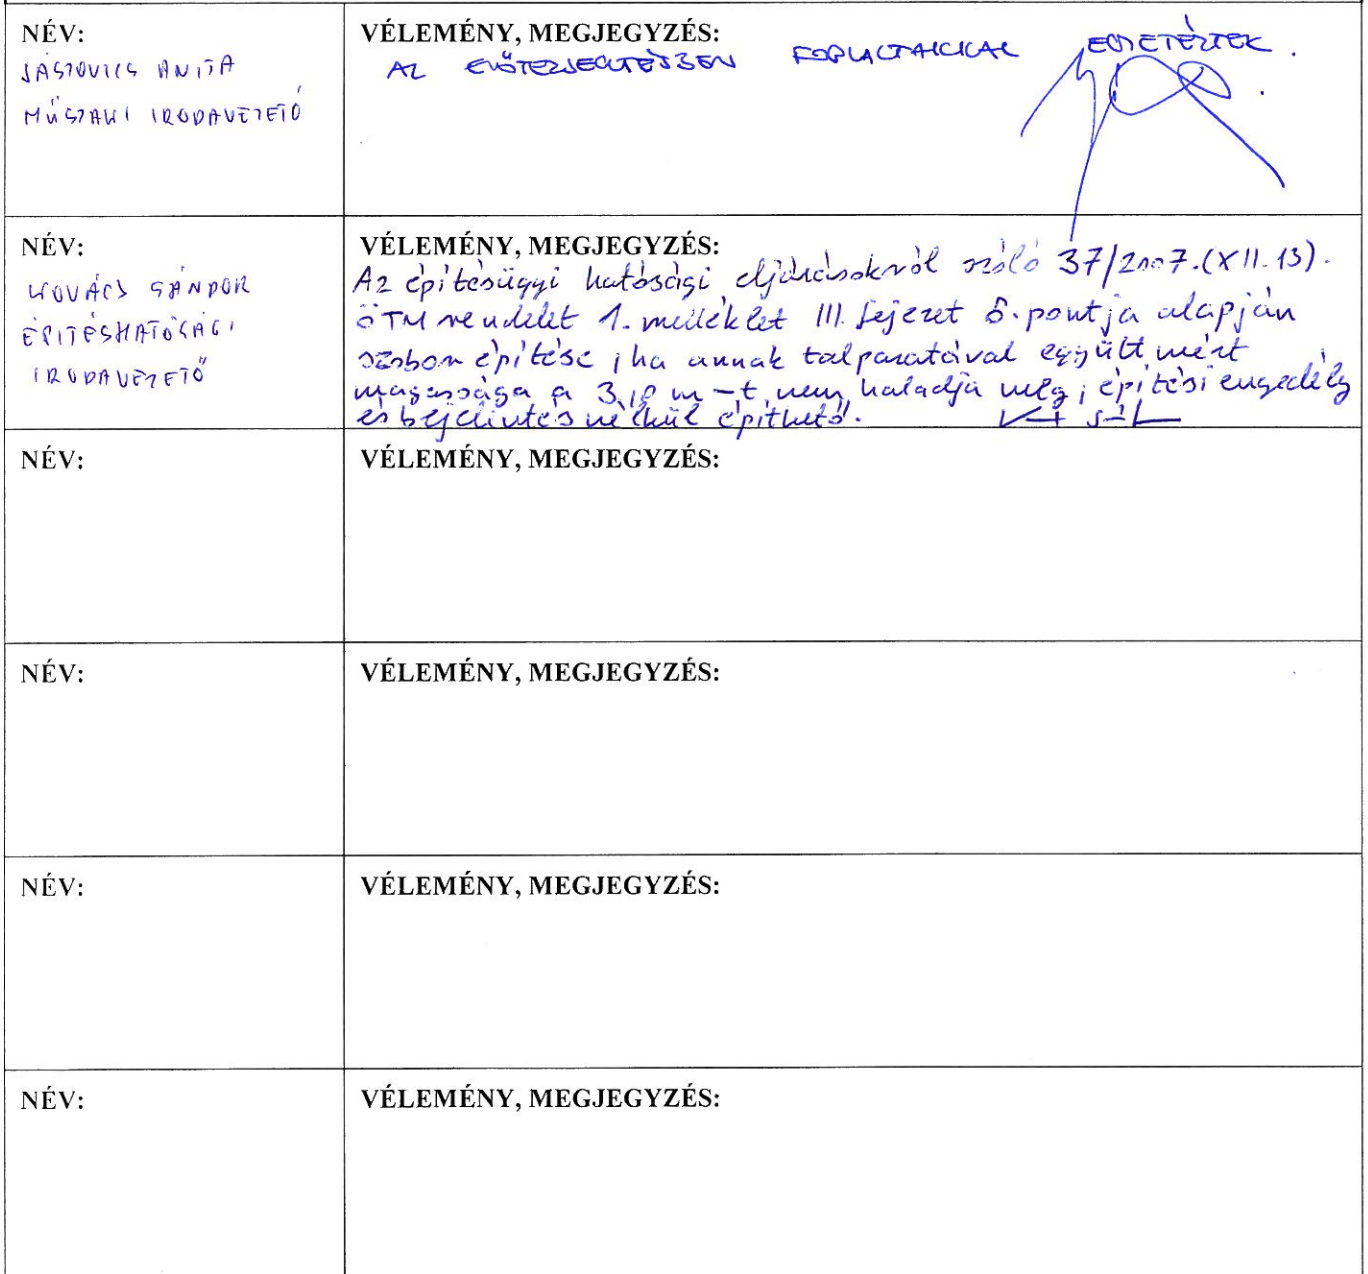 NÉV:
JÁSZOVICS ANITA
MŰSZAKI IRODAVEZETŐ
VÉLEMÉNY, MEGJEGYZÉS:
AZ ELŐTERJESZTÉSBEN FOGLALTAKKAL EGYETÉRTEK.
NÉV:
KOVÁCS SÁNDOR
ÉPÍTÉSHATÓSÁGI
IRODAVEZETŐ
VÉLEMÉNY, MEGJEGYZÉS:
Az építésügyi hatósági eljárásokról szóló 37/2007.(XII.13).
ÖTM rendelet 1. melléklet III. fejezet 6. pontja alapján
szobor építése, ha annak talpazatával együtt mért
magassága a 3,0 m-t nem haladja meg, építési engedély
és bejelentés nélkül építhető.
NÉV:
VÉLEMÉNY, MEGJEGYZÉS:
NÉV:
VÉLEMÉNY, MEGJEGYZÉS:
NÉV:
VÉLEMÉNY, MEGJEGYZÉS:
NÉV:
VÉLEMÉNY, MEGJEGYZÉS: